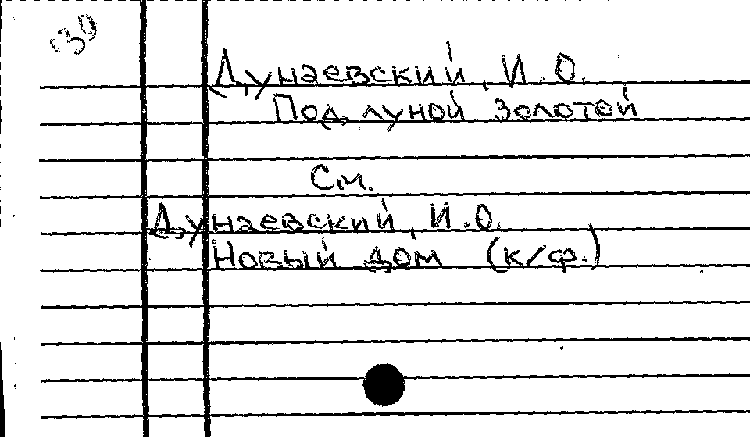 Дунаевский, И.О.
Под луной золотой
См.
Дунаевский, И.О.
Новый дом (к/ф.)